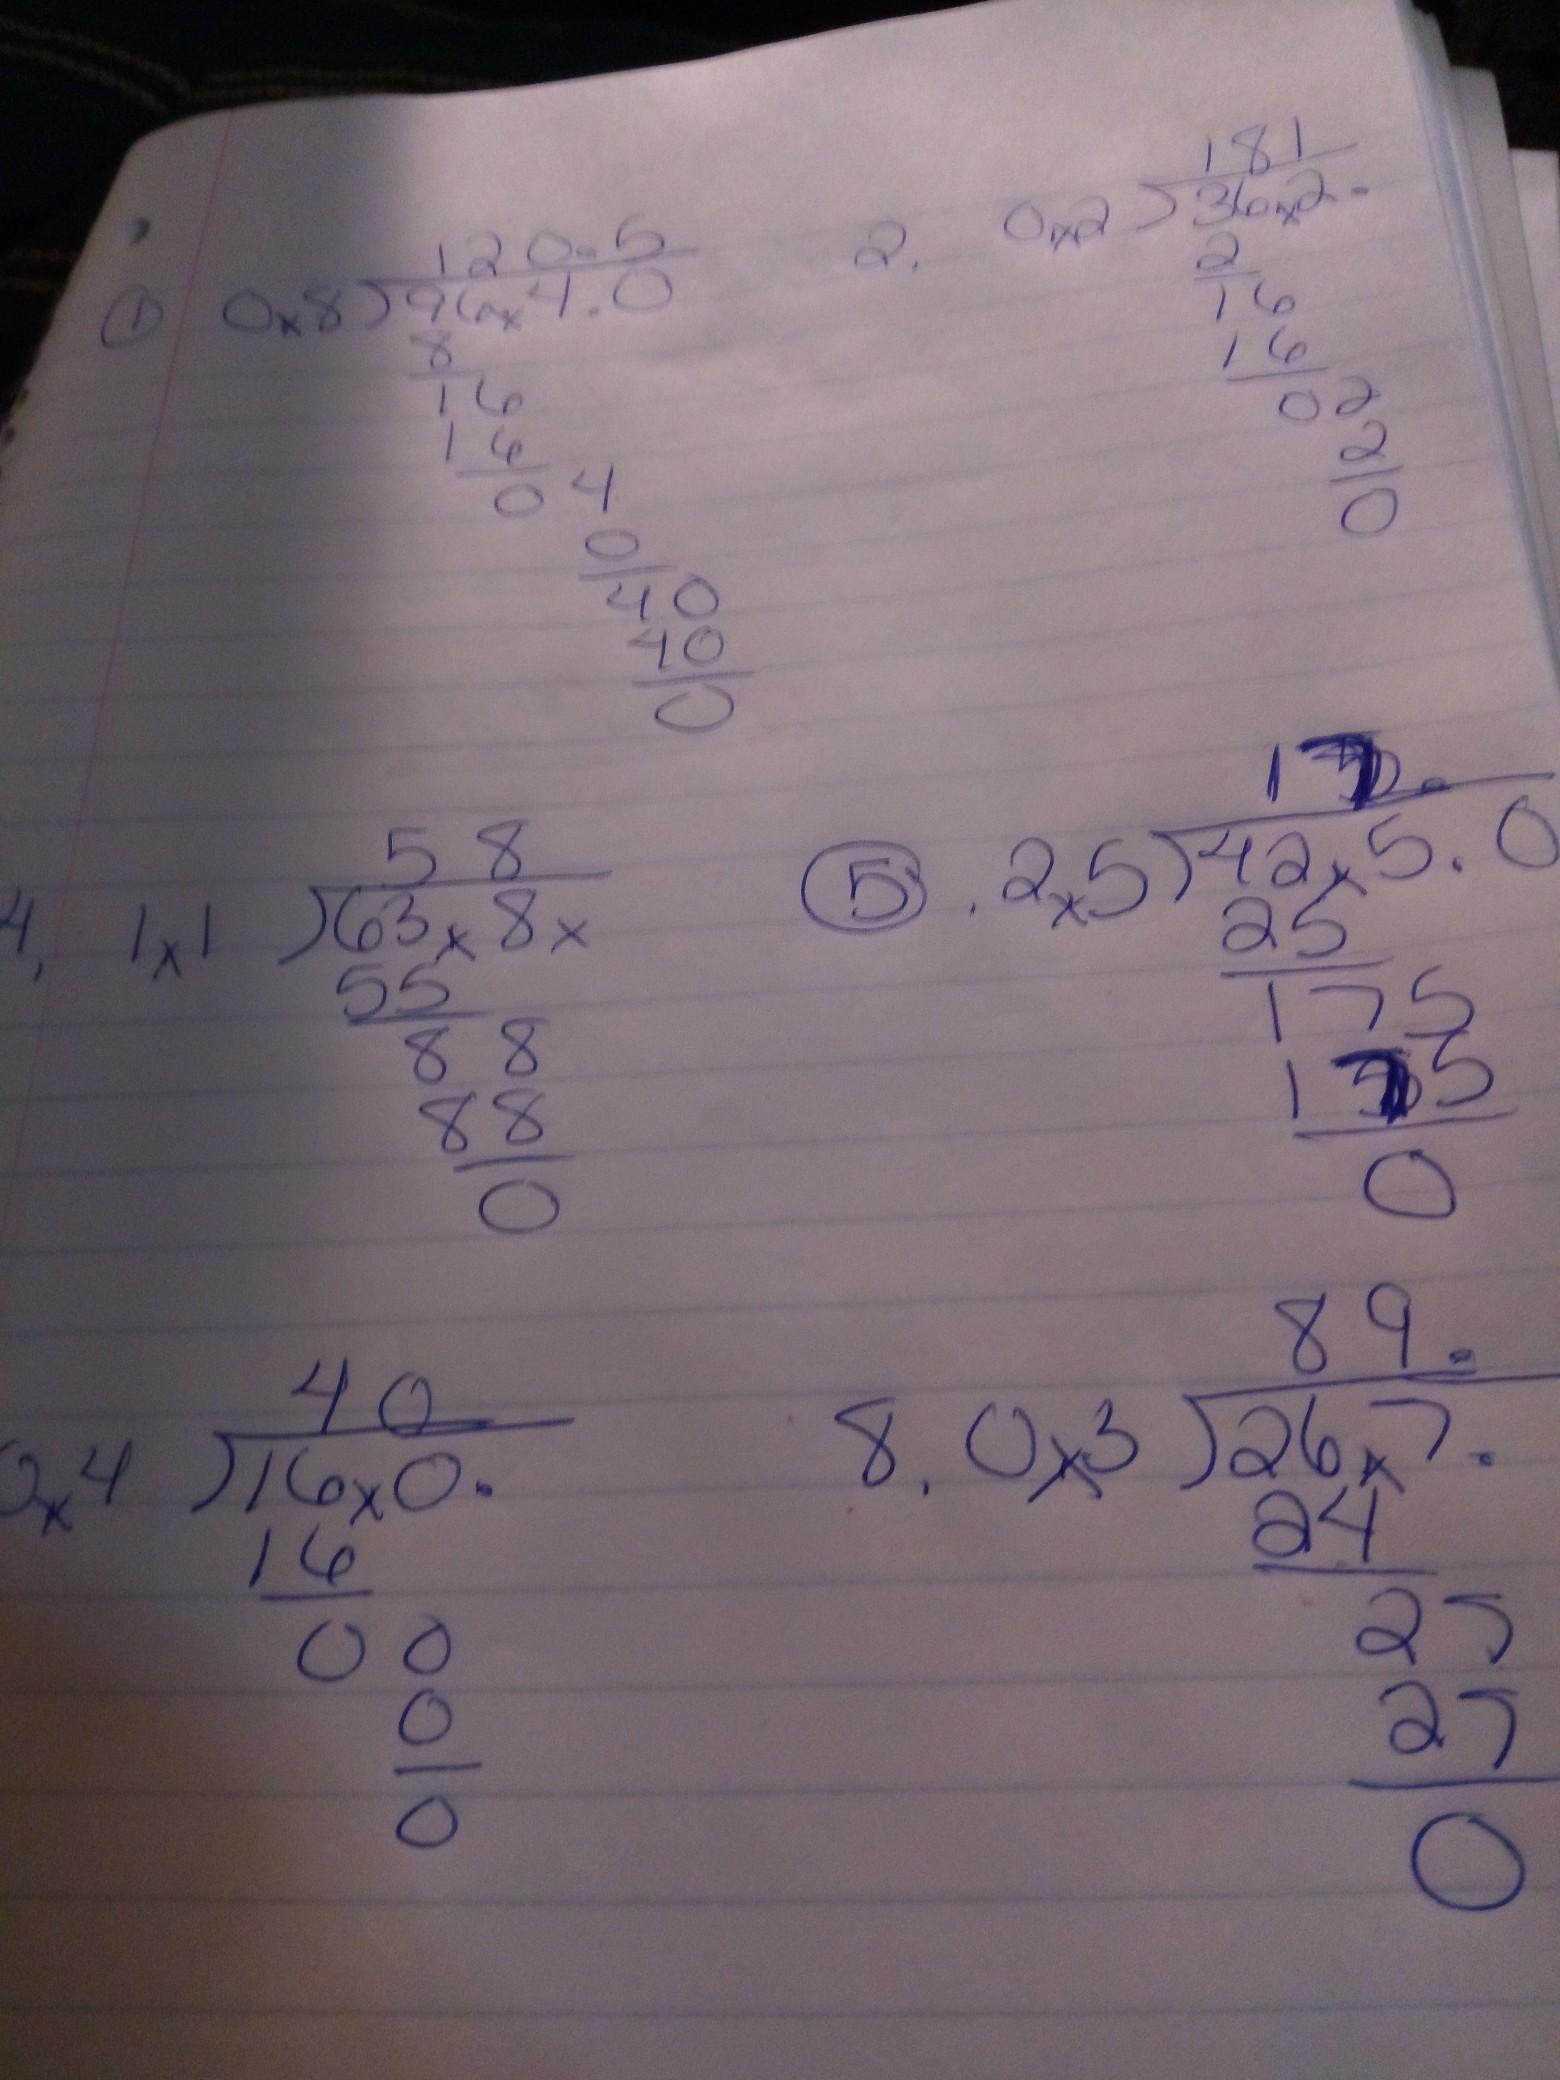 120.5
① 0x8)96x4.0
8
16
16
0 4
0
40
40
0
181
2. 0x2)36x2.
2
16
16
02
2
0
58
4. 1x1)63x8x
55
88
88
0
17.
⑤. 2x5)42x5.0
25
175
175
0
40
x4)16x0.
16
00
0
0
89.
8. 0x3)26x7.
24
27
27
0